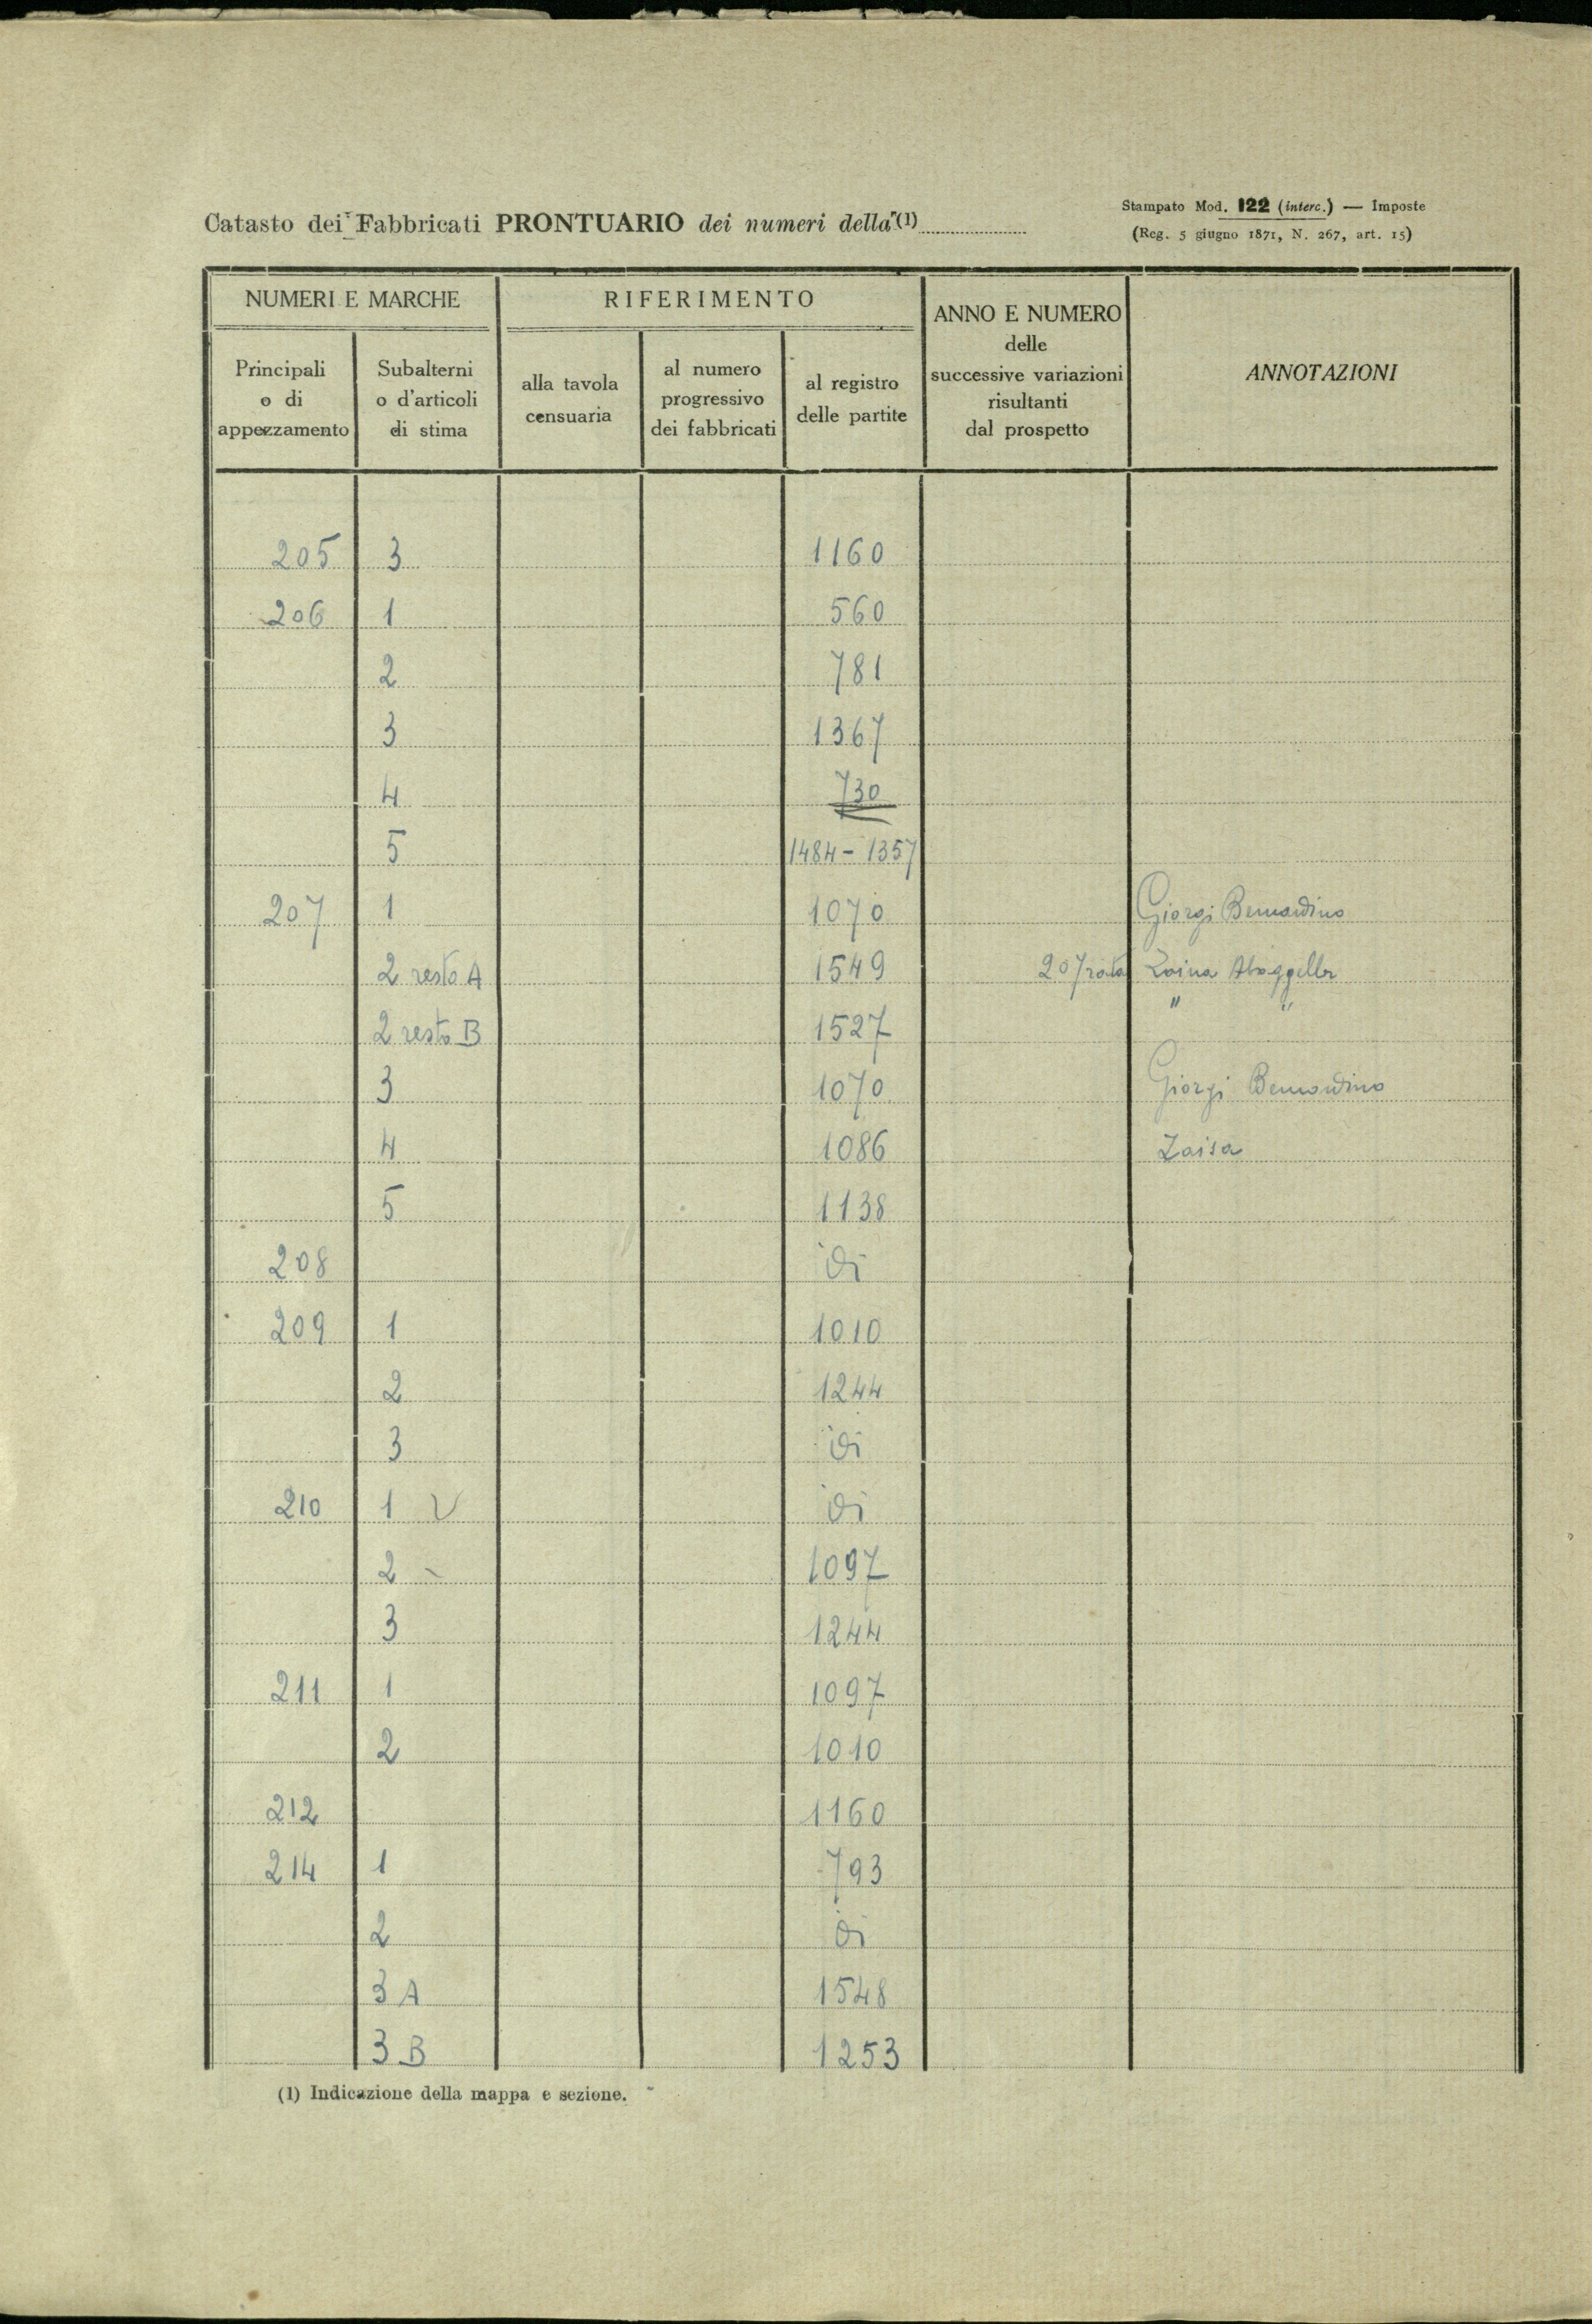 Catasto dei Fabbricati PRONTUARIO dei numeri della (1)
Stampato Mod. 122 (interc.) — Imposte
(Reg. 5 giugno 1871, N. 267, art. 15)
NUMERI E MARCHE
RIFERIMENTO
ANNO E NUMERO
delle
successive variazioni
risultanti
dal prospetto
ANNOTAZIONI
Principali
o di
appezzamento
Subalterni
o d'articoli
di stima
alla tavola
censuaria
al numero
progressivo
dei fabbricati
al registro
delle partite
205 3 1160
206 1 560
2 781
3 1367
4 730
5 1484 - 1357
207 1 1070 Giorgi Bernardino
2 resto A 1549 207 rata
2 resto B 1527 " "
3 1070 Giorgi Bernardino
4 1086 Zaisa
5 1138
208 di
209 1 1010
2 1244
3 di
210 1 V di
2 1097
3 1244
211 1 1097
2 1010
212 1160
214 1 793
2 di
3 A 1548
3 B 1253
(1) Indicazione della mappa e sezione.